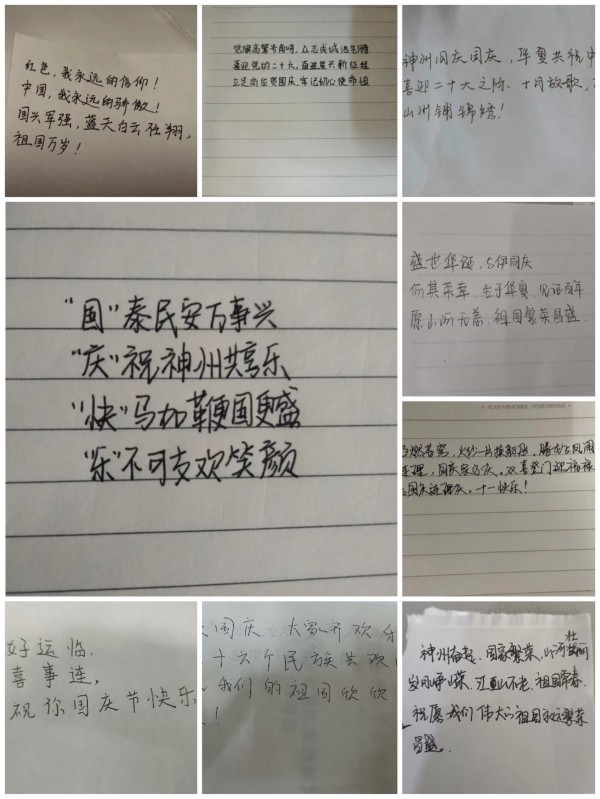 红色，我永远的信仰！
中国，我永远的骄傲！
国兴军强，蓝天白云任翔，
祖国万岁！
党旗高擎号角鸣，众志成城逐生腾
喜迎党的二十大，奋进复兴新征程
立足岗位贺国庆，牢记初心使命
神州同庆国庆，华夏共祝中
喜迎二十大之际，十月放歌，
山川铺锦绣！
"国"泰民安万事兴
"庆"祝神州共享乐
"快"马加鞭国更盛
"乐"不可支欢笑颜
盛世华诞，与伊同庆
何其荣幸 生于华夏 见证百年
愿山河无恙，祖国繁荣昌盛
YOUR MEMORIES YOUR DREAMS
国庆家家庆，双喜登门迎福禄
国庆 十一快乐！
好运临，
喜事连，
祝你国庆节快乐
国庆，大家齐欢乐
十六个民族共欢
我们的祖国欣欣
！
神州奋起，国家繁荣，山河壮丽
岁月峥嵘，江山不老，祖国常春
祝愿我们伟大的祖国永远繁荣
昌盛。